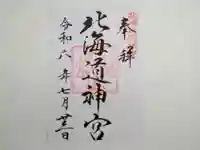 奉拝
北海道神宮
令和六年七月廿三日